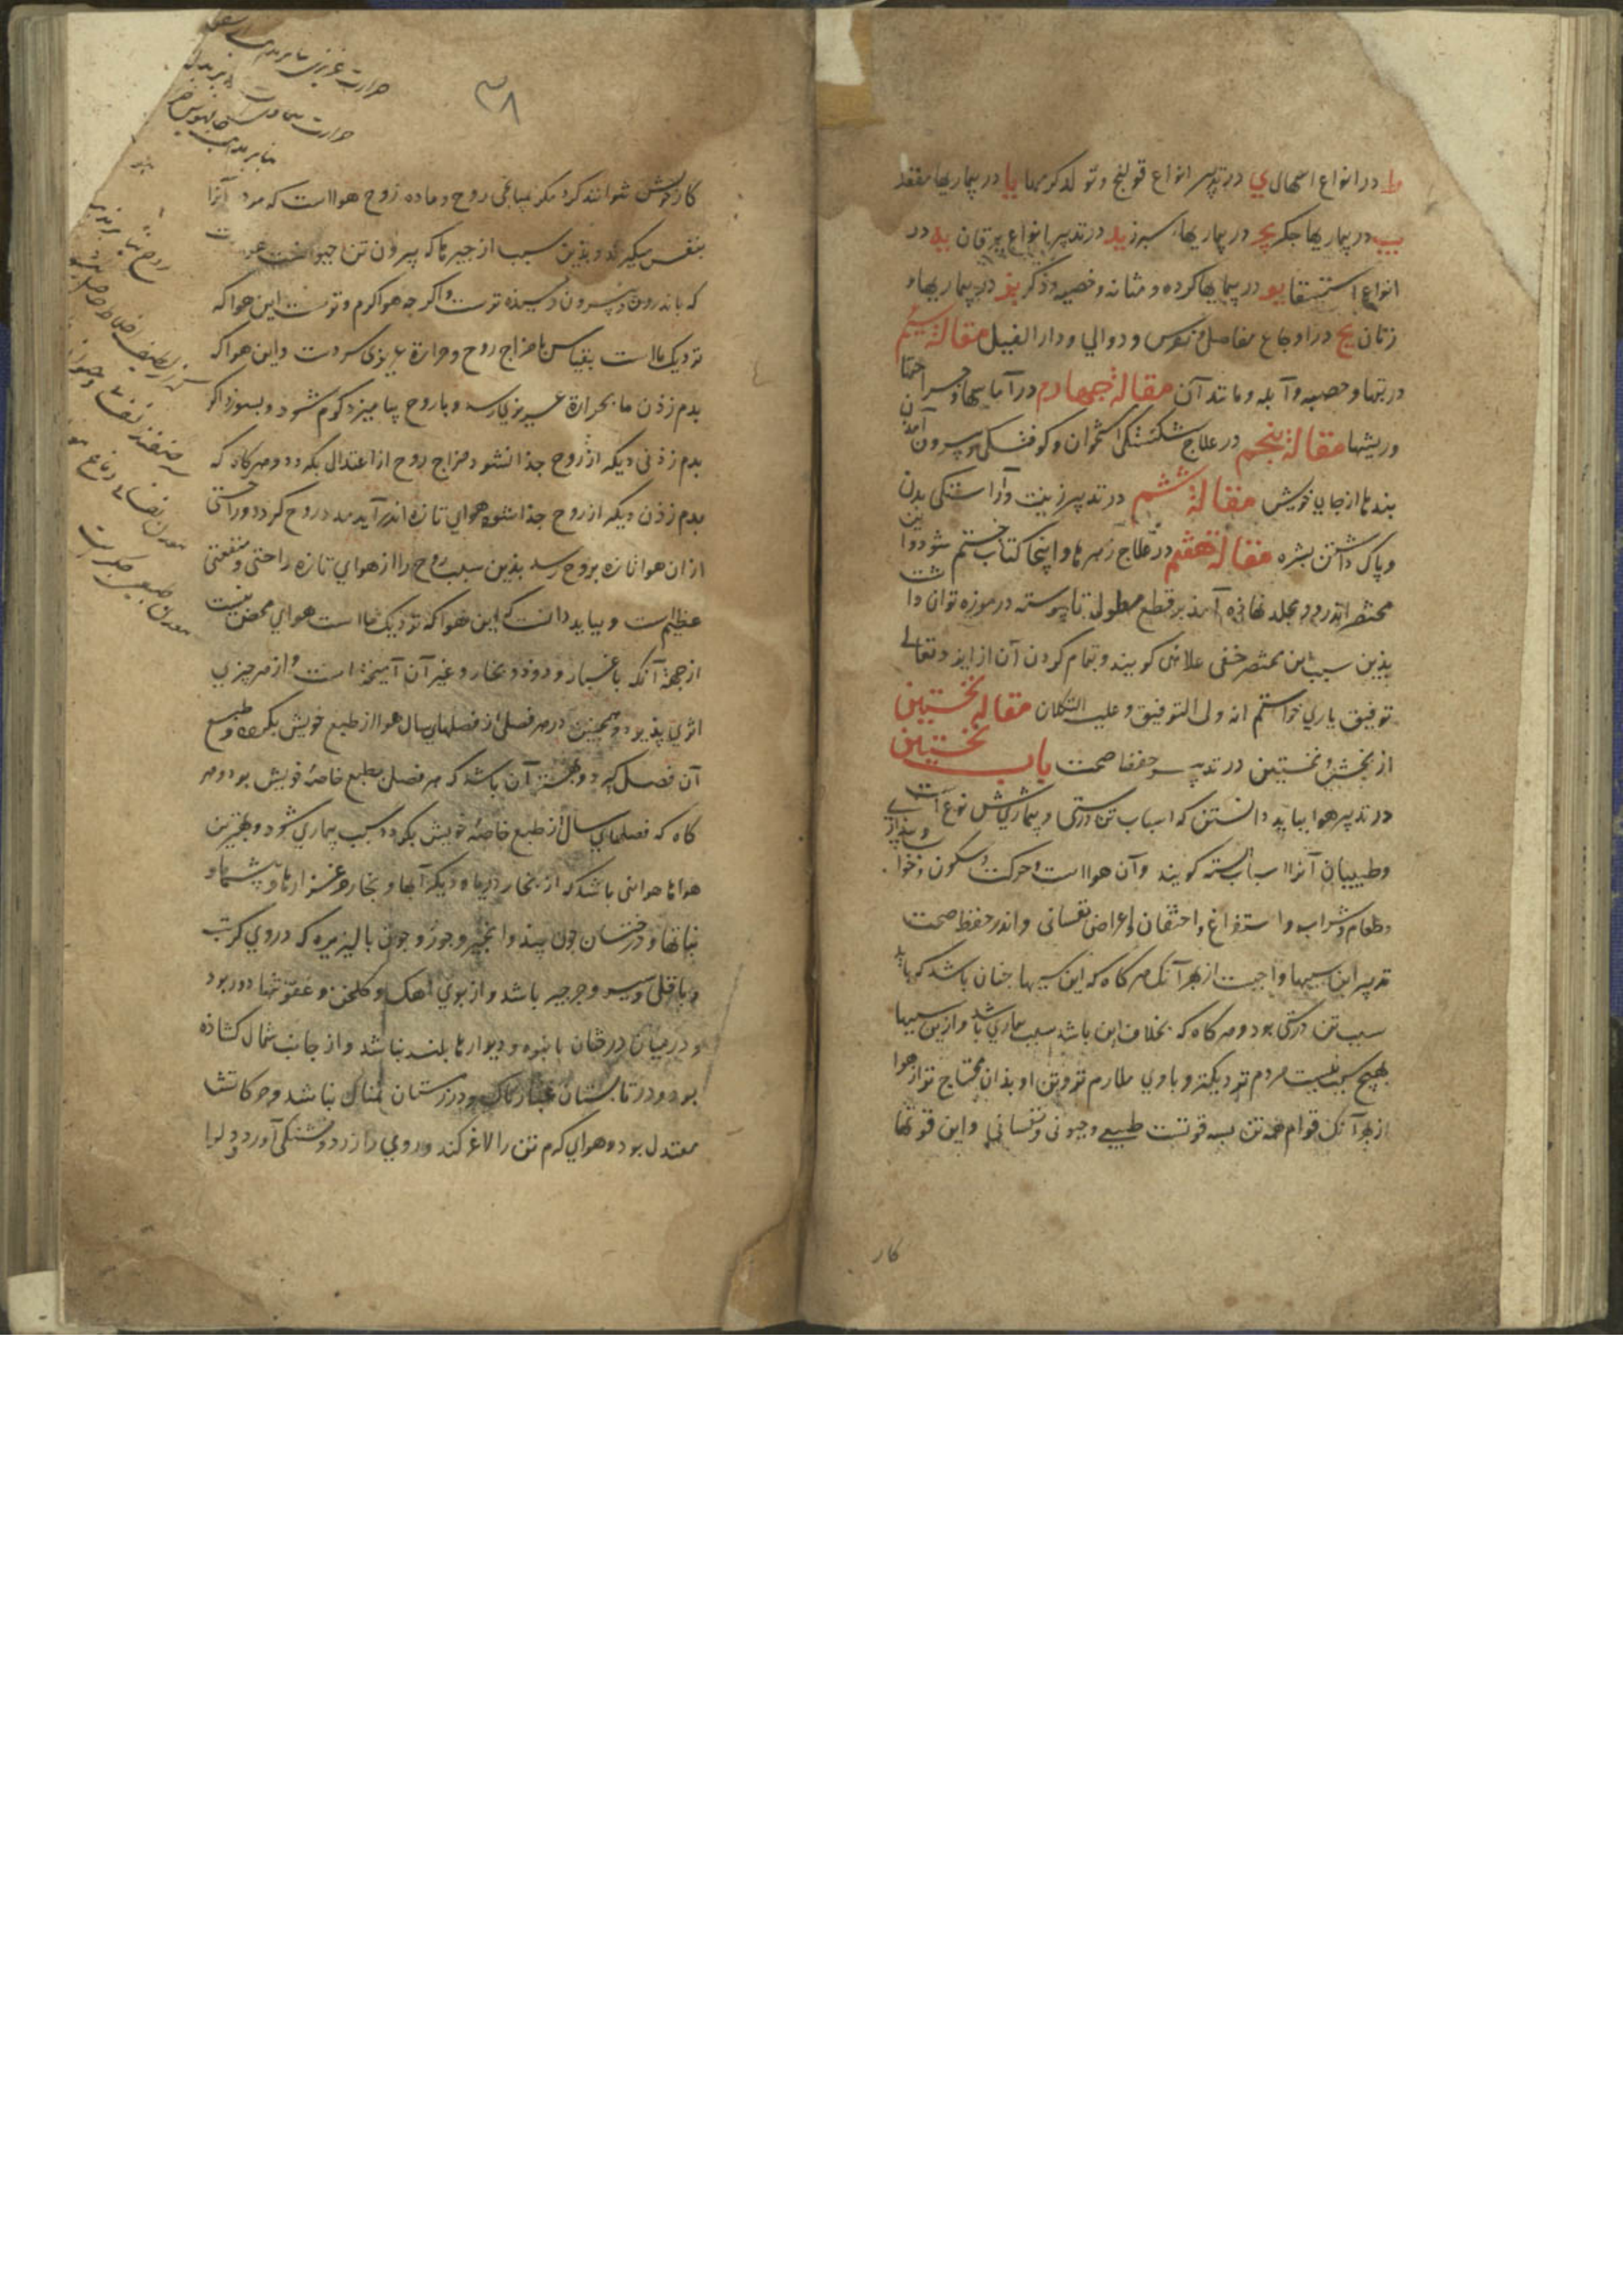 ط در انواع اسهال ي در تدبیر انواع قولنج و تولد کرمها یا در بیماریها مقعد
یب در بیماریها جکر یج در بیماریها سبرز ید در تدبیر انواع یرقان یه در
انواع استسقا یو در بیماریها کرده و مثانه و خصیه و ذکر یز در بیماریها و
زنان یح در اوجاع مفاصل و نقرس و دوالي و دار الفیل مقالۀ سیم
در تبها و حصبه و آبله و مانند آن مقالۀ جهارم در آماسها و جراحتها
و ریشها مقالۀ پنجم در علاج شکستکی استخوان و کوفتکی و بیرون آمدن
بندها از جاي خویش مقالۀ ششم در تدبیر زینت و آراستکی بدن
و پاک داشتن بشره مقالۀ هفتم در علاج زهرها و اینجا کتاب ختم شود و این
مختصر اندر دو مجلد نهاذه آمذ بر قطع مطول تا پیوسته در موزه توان داشت
بذین سبب این مختصر خفی علائی کویند و تمام کردن آن از ایزد تعالی
توفیق یاري خواستم انه ولی التوفیق و علیه التکلان مقالۀ نخستین
از بخش نخستین در تدبیر حفظ صحت باب نخستین
در تدبیر هوا بباید دانستن که اسباب تن درستی و بیماري شش نوع است
و طبیبان آنرا اسباب سته کویند و آن هوا است و حرکت و سکون و خواب و بیداري
و طعام و شراب و استفراغ و احتقان و اعراض نفسانی و اندر حفظ صحت
تدبیر این سببها واجبست از بهر آنک هر کاه که این سببها جنان باشد که باید
سبب تن درستی بود و هر کاه که بخلاف این باشد سبب بیماري باشد و ازین سببها
هیچ سبب نیست بمردم نزدیکتر و با وي ملازم تر و تن او بذان محتاج تر از هوا
از بهر آنک قوام همه تن بسه قوتست طبیعی و حیوني و نفسانی و این قوتها
کار
۳۸
کار خویش نتوانند کرد مکر بمیانجی روح و ماده روح هوا است که مردم آنرا
بنفس میکیرند و بذین سبب از جیزها که بیرون تن
که باندرون و بیرون رسیذه ترست و اکر جه هوا کرم و ترست این هوا که
نزدیک ما است بقیاس با مزاج روح و حرارة غریزي سردست و این هوا که
بدم زذن ما بحرارة غریزي رسد و با روح بیامیزد کرم شود و بسوزد اکر
بدم زذنی دیکر از روح جذا نشود مزاج روح از اعتدال بکردد و هر کاه که
بدم زذن دیکر از روح جذا شود و هواي تازه اندر آید مدد روح کردد و راحتی
از ان هوا تازه بروح رسد بذین سبب روح را از هواي تازه راحتی و منفعتی
عظیمست و بباید دانست که این هوا که نزدیک ما است هواي محض نیست
از جهة آنکه با غبار و دوذ و بخار و غیر آن آمیخته است و از هر جیزي
اثري پذیرد و همجنین در هر فصلی از فصلهاي سال هوا از طبع خویش بکردد و طبع
آن فصل کیرد و بهترین آن باشد که هر فصل بطبع خاصۀ خویش بود و هر
کاه که فصلهاي سال از طبع خاصۀ خویش بکردد سبب بیماري شود و بهترین
هواها هوائی باشد که از بخار دریاها و دیکر آبها و بخار مرغزارها و بیشها و
نباتها و درختان جون بید و انجیر و جوز و جون بالیزیره که دروي کرنب
و باقلی و سیر و جرجیر باشد و از بوي آهک و کلخن و عفونتها دور بود
و در میان درختان بانبوه و دیوارها بلند نباشد و از جانب شمال کشاذه
بود و در تابستان غبارناک و در زمستان نمناک نباشد و حرکاتش
معتدل بود و هواي کرم تن را لاغر کند و روي را زرد و تشنکی آورد و دل را